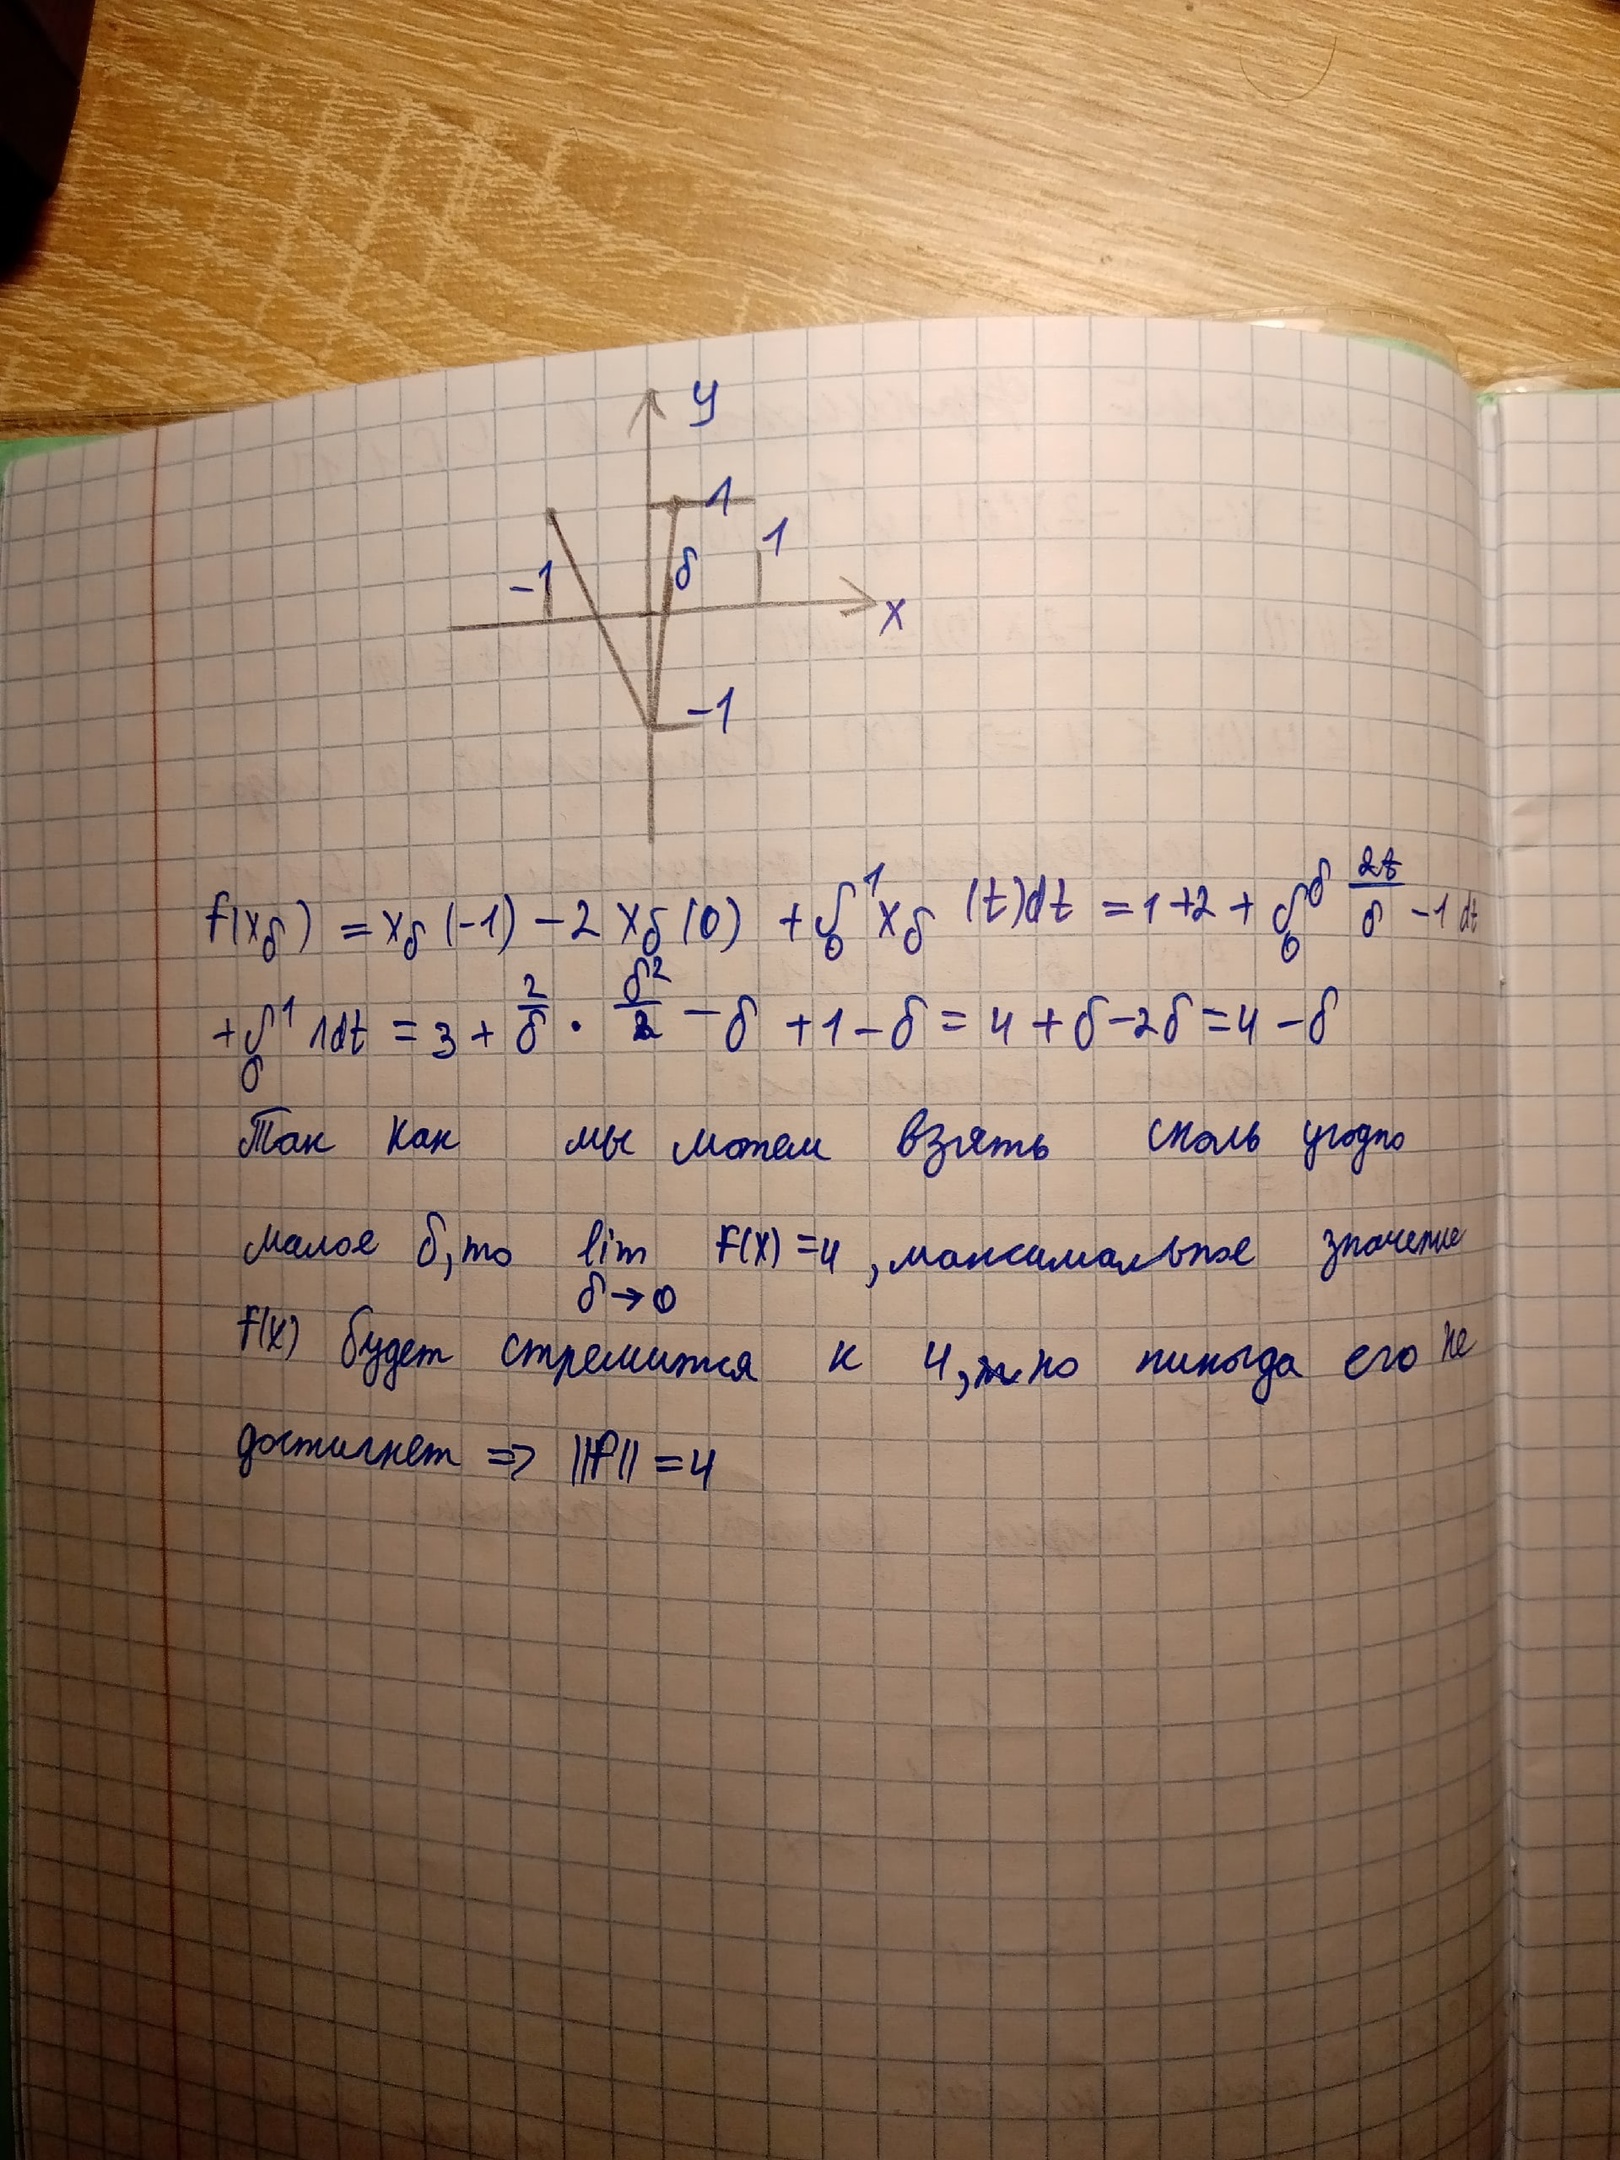 y
1
1
-1
δ
x
-1
f(x_δ) = x_δ(-1) - 2 x_δ(0) + ∫₀¹ x_δ (t)dt = 1+2 + ∫₀^δ 2t/δ - 1 dt
+ ∫_δ¹ 1dt = 3 + 2/δ · δ²/2 - δ + 1 - δ = 4 + δ - 2δ = 4 - δ
Так как мы можем взять сколь угодно
малое δ, то lim δ→0 f(x) = 4, максимальное значение
f(x) будет стремится к 4, но никогда его не
достигнет ⇒ ||f|| = 4